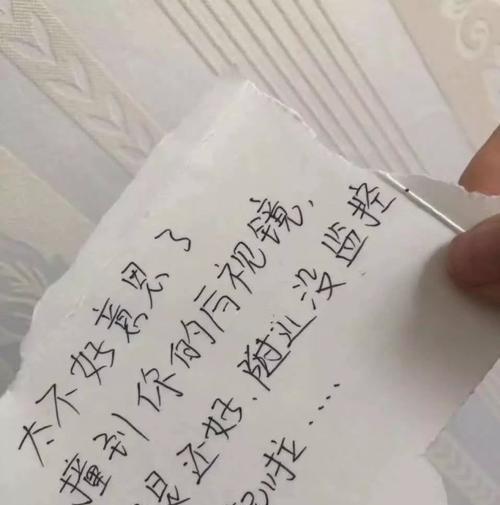 太不好意思了
撞到你的后视镜.
是还好.附近没监控
啦....